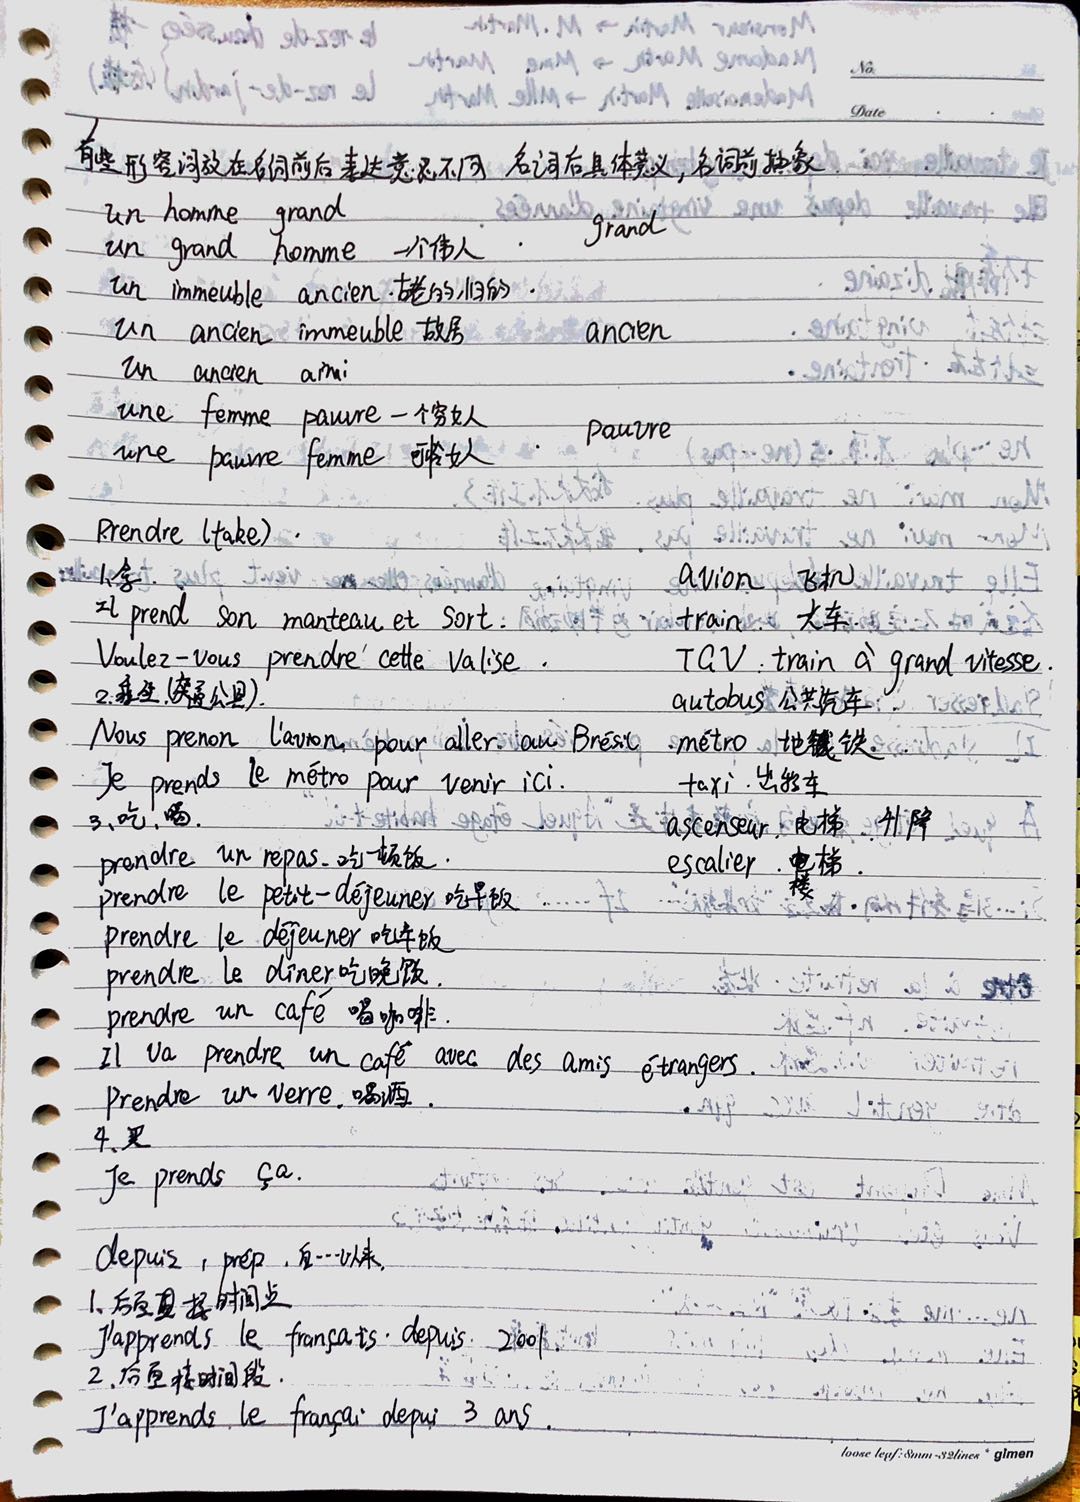 No.
Date
有些形容词放在名词前后表达意思不同 名词后具体意义,名词前抽象.
un homme grand
un grand homme 一个伟人 grand
un immeuble ancien. 老的旧的.
un ancien immeuble 故居 ancien
un ancien ami
une femme pauvre 一个穷女人
une pauvre femme 可怜女人 pauvre
Prendre (take).
1.拿. avion 飞机
Il prend son manteau et sort. train. 火车.
Voulez-vous prendre cette valise. TGV. train à grand vitesse.
2.乘坐(交通公具). autobus 公共汽车.
Nous prenon l'avion pour aller au Brésil métro 地铁.
Je prends le métro pour venir ici. taxi. 出租车
3、吃、喝. ascenseur. 电梯 升降
prendre un repas. 吃一顿饭. escalier. 梯.
楼
prendre le petit-déjeuner 吃早饭
prendre le déjeuner 吃午饭
prendre le dîner 吃晚饭.
prendre un café 喝咖啡.
Il va prendre un café avec des amis étrangers.
Prendre un verre. 喝酒.
4、买
Je prends ça.
depuis, prép. 自…以来.
1、后面直接时间点
J'apprends le français depuis 2001
2.后面接时间段.
J'apprends le françai depui 3 ans.
loose leaf: 8mm-32lines * glmen